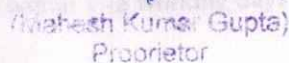 (Mahesh Kumar Gupta)
Proprietor